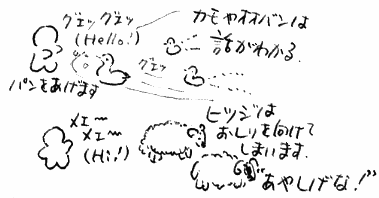 グエッグエッ
(Hello!)
カモやオオバンは
話がわかる.
グエッ
パンをあげます
メエ〜
メエ〜
(Hi!)
ヒツジは
おしりを向けて
しまいます.
"あやしげな!"